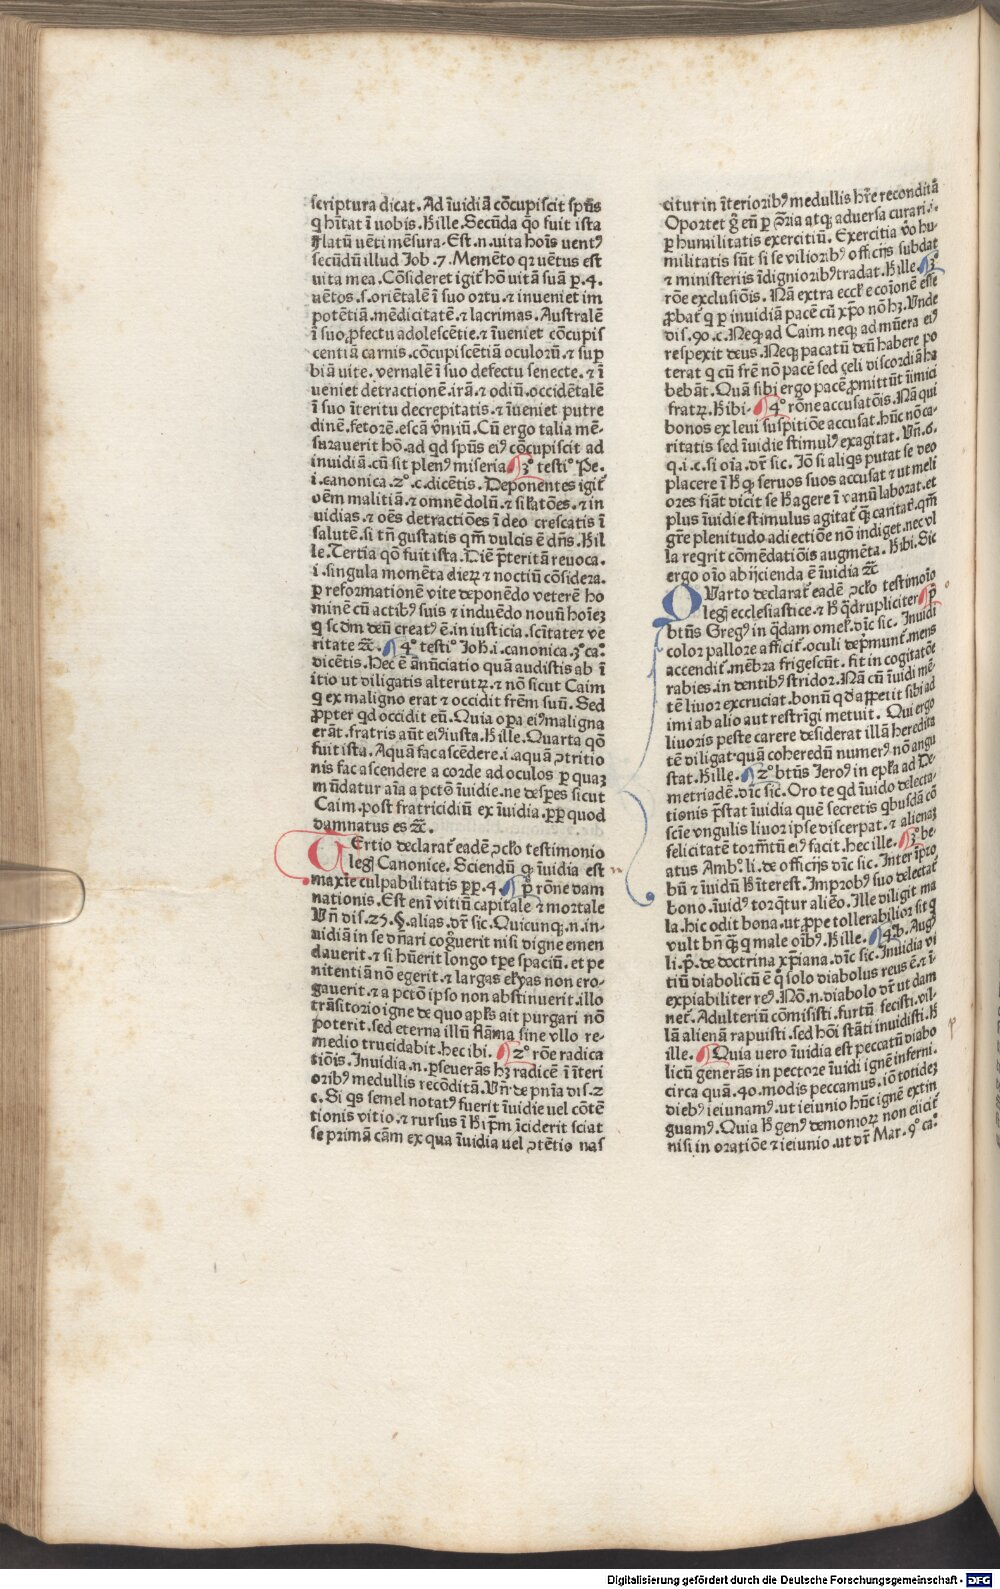 scriptura dicat. Ad ĩuidiã cõcupiscit spũs
q hĩtat ĩ vobis. Hille. Secũda qõ fuit ista
flatũ uẽti mẽsura. Est .n. uita hoĩs uentꝰ
secũdũ illud Job .7. Memẽto qꝛ uẽtus est
uita mea. Cõsideret igit᷑ hõ uitã suã ꝑ .4.
uẽtos .s. oriẽtalẽ ĩ suo ortu. ⁊ inueniet im
potẽtiã. mẽdicitatẽ. ⁊ lacrimas. Australẽ
ĩ suo ꝓfectu adolescẽtie. ⁊ ĩueniet cõcupis
centiã carnis. cõcupiscẽtiã oculoꝛũ. ⁊ suꝑ
biã uite. vernalẽ ĩ suo defectu senecte. ⁊ ĩ
ueniet detractionẽ. irã. ⁊ odiũ. occidẽtalẽ
ĩ suo ĩteritu decrepitatis. ⁊ ĩueniet putre
dinẽ. fetorẽ. escã ṽmiũ. Cũ ergo talia mẽ-
surauerit hõ. ad qd spũs eiꝰ cõcupiscit ad
inuidiã. cũ sit plenꝰ miseria ¶ 3° testi° Pe.
i. canonica. 2°. c. dicẽtis. Deponentes igit᷑
oẽm malitiã. ⁊ omnẽ dolũ. ⁊ sil̃atões. ⁊ in
uidias. ⁊ oẽs detractiões ĩ deo crescatis ĩ
salutẽ. si tñ gustatis qm̃ dulcis ẽ dñs. Hil
le. Tertia qõ fuit ista. Diẽ p̃teritã reuoca.
.i. singula momẽta dieꝝ ⁊ noctiũ cõsidera.
ꝑ reformationẽ vite deponẽdo veterẽ ho
minẽ cũ actibꝰ suis ⁊ induẽdo nouũ hoĩeꝫ
q scd̃m deũ creatꝰ ẽ. in iusticia. scĩtate ⁊ ve
ritate ⁊c̃. ¶ 4° testi° Joh. i. canonica. 3. ca°
dicẽtis. Hec ẽ ãnũciatio quã audistis ab ĩ
itio ut diligatis alterutꝝ. ⁊ nõ sicut Caim
q ex maligno erat ⁊ occidit frẽm suũ. Sed
ꝓpter qd occidit eũ. Quia oꝑa eiꝰ maligna
erãt. fratris aũt eiꝰ iusta. Hille. Quarta qõ
fuit ista. Aquã fac ascẽdere .i. aquã ꝯtritio
nis fac ascendere a corde ad oculos ꝑ quaꝫ
mũdatur aĩa a pctõ ĩuidie. ne deſꝑes sicut
Caim. post fratricidiũ ex ĩuidia. ꝓꝑ quod
damnatus es ⁊c̃.
Tertio declarat᷑ eadẽ ꝯclo testimonio
legꝭ Canonice. Sciendũ qꝙ ĩuidia est
maxĩe culpabilitatis ꝓꝑ .4. ¶ p° rõne dam
nationis. Est enĩ vitiũ capitale ⁊ mortale
Vñ dis. 25. §. alias. dr̃ sic. Quicunqꝫ .n. in-
uidiã in se dñari cogñuerit nisi digne emen
dauerit. ⁊ si hũerit longo tꝑe spaciũ. et pe
nitentiã nõ egerit. ⁊ largas elẽyas non ero-
gauerit. ⁊ a pctõ ipso non abstinuerit. illo
trãsitorio igne de quo apl̃s ait purgari nõ
poterit. sed eterna illũ flãma sine vllo re-
medio trucidabit. hec ibi. ¶ 2° rõe radica
tiõis. Inuidia .n. ꝑseuerãs hꝫ radicẽ ĩ ĩteri
oribꝰ medullis recõditã. Vñ de pnĩa dis. 2
c. Si qs semel notatꝰ fuerit ĩuidie uel cõtẽ
tionis vitio. ⁊ rursus ĩ h ip̃m ĩciderit sciat
se primã cãm ex qua ĩuidia uel ꝯtẽtio nas
citur in ĩterioribꝰ medullis hr̃e reconditã
Oportet g̃ eũ ꝑ ꝯ̃ria atqꝫ aduersa curari .i.
ꝑ humilitatis exercitiũ. Exercitia ṽo hu-
militatis sũt si se vilioribꝰ officijs subdat
⁊ ministeriis ĩdignioribꝰ tradat. Hille. ¶ 3°
rõe exclusiõis. Nã extra eccl̃e coĩonẽ esse
ꝓbat᷑ q ꝑ inuidiã pacẽ cũ xp̃o nõ hꝫ. Vnde
dis. 90. c. Neqꝫ ad Caim neqꝫ ad mũera eiꝰ
respexit deus. Neqꝫ pacatũ deũ habere po
terat q cũ fr̃e nõ pacẽ sed çeli discordiã ha
bebãt. Quã sibi ergo pacẽ ꝓmittũt ĩimici
fratꝝ. Hibi. ¶ 4° rõne accusatõis. Nã qui
bonos ex leui suspitiõe accusat. hũc nõ ca-
ritatis sed ĩuidie stimulꝰ exagitat. Vñ .6.
q. i. c. si oĩa. dr̃ sic. Jõ si aliqs putat se deo
placere ĩ h q seruos suos accusat ⁊ ut meli
ores fiãt dicit se h agere ĩ vanũ laborat. et
plus ĩuidie stimulus agitat᷑ qꝫ caritat᷑. qm̃
gr̃e plenitudo adiectiõe nõ indiget. nec vl
la reqrit cõmẽdatiõis augmẽta. Hibi. Sic
ergo oĩo abijcienda ẽ ĩuidia ⁊c̃
QVarto declarat᷑ eadẽ ꝯclo testimoĩo
legꝭ ecclesiastice. ⁊ h qdrupliciter ¶ p°
btũs Gregꝰ in qdam omel̃. dĩc sic. Inuidi
color pallore afficit᷑. oculi dep̃munt᷑. mens
accendit᷑. mẽbra frigescũt. fit in cogitatõe
rabies. in dentibꝰ stridor. Nã cũ ĩuidi mẽ
tẽ liuor excruciat. bonũ qd appetit sibi ad
imi ab alio aut restrĩgi metuit. Qui ergo
liuoris peste carere desiderat illã heredita
tẽ diligat. quã coheredũ numerꝰ nõ angu
stat. Hille. ¶ 2° btũs Jeroꝰ in ep̃la ad De
metriadẽ. dĩc sic. Oro te qd ĩuido delecta-
tionis p̃stat ĩuidia quẽ secretis qbusdã cõ
scĩe vngulis liuor ipse discerpat. ⁊ alienaꝫ
felicitatẽ tormẽtũ eiꝰ facit. hec ille. ¶ 3° be-
atus Amb°. li. de officijs dĩc sic. Inter ĩpro
bũ ⁊ ĩuidũ h ĩterest. Improbꝰ suo delectat᷑
bono. ĩuidꝰ torqtur aliẽo. Ille diligit ma
la. hic odit bona. ut ꝓpe tollerabilior sit q
vult bñ qꝫ q male oĩbꝰ. Hille. ¶ 4° b. Augꝰ
li. p°. de doctrina xp̃iana. dĩc sic. Inuidia vi
tiũ diabolicũ ẽ q° solo diabolus reus ẽ. ⁊ ĩ-
expiabiliter reꝰ. Nõ .n. diabolo dr̃ ut dam
net᷑. Adulteriũ cõmisisti. furtũ fecisti. vil-
lã alienã rapuisti. sed hõi stãti inuidisti. H
ille. ¶ Quia uero ĩuidia est peccatũ diabo
licũ generãs in pectore ĩuidi ignẽ inferni.
circa quã .40. modis peccamus. iõ totideꝫ
diebꝰ ieiunamꝰ. ut ieiunio hũc ignẽ extin
guamꝰ. Quia h genꝰ demonioꝝ non eiicit᷑
nisi in oratiõe ⁊ ieiunio. ut dr̃ Mar. 9° ca°
Digitalisierung gefördert durch die Deutsche Forschungsgemeinschaft - DFG